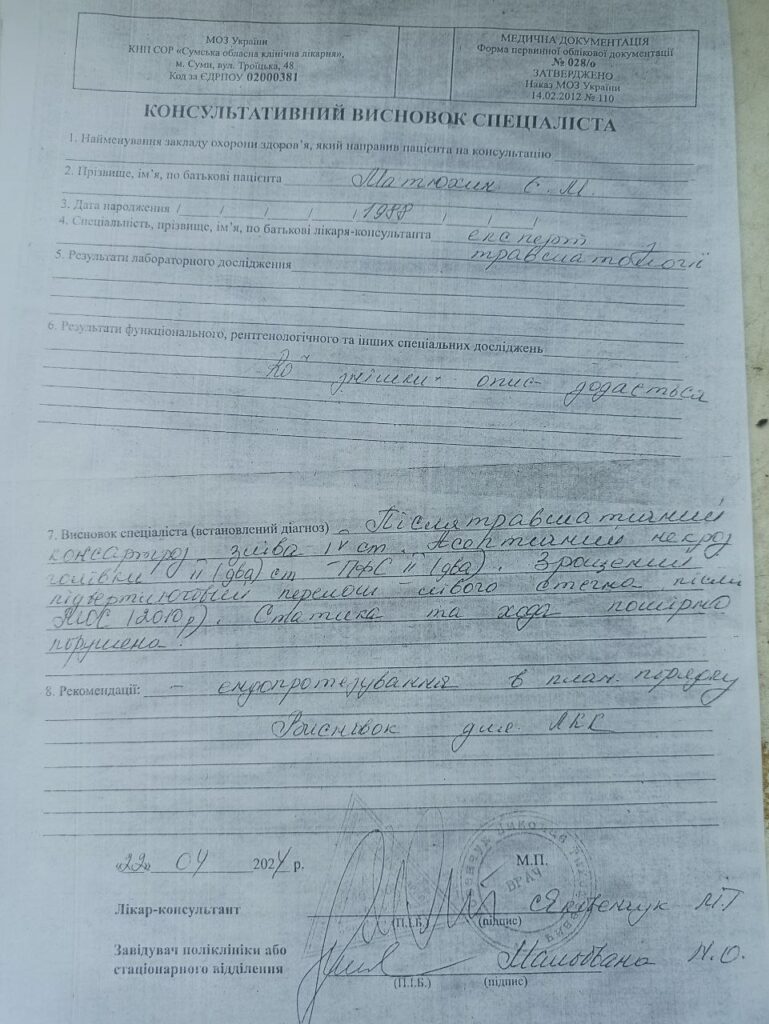 МОЗ України
КНП СОР «Сумська обласна клінічна лікарня»,
м. Суми, вул. Троїцька, 48
Код за ЄДРПОУ 02000381
МЕДИЧНА ДОКУМЕНТАЦІЯ
Форма первинної облікової документації
№ 028/о
ЗАТВЕРДЖЕНО
Наказ МОЗ України
14.02.2012 № 110
КОНСУЛЬТАТИВНИЙ ВИСНОВОК СПЕЦІАЛІСТА
1. Найменування закладу охорони здоров’я, який направив пацієнта на консультацію
2. Прізвище, ім’я, по батькові пацієнта Матюхин С. М.
3. Дата народження / / / / / 1988 / / /
4. Спеціальність, прізвище, ім’я, по батькові лікаря-консультанта експерт
травматології
5. Результати лабораторного дослідження
6. Результати функціонального, рентгенологічного та інших спеціальних досліджень
знімки опис додається
7. Висновок спеціаліста (встановлений діагноз) Післятравматичний
зліва IV ст. некроз
голівки II (два) ст ПФС II (два). Зрощений
підвертлюговий перелом лівого стегна після
МОС (2010 р). Статика та хода помірно
порушена.
8. Рекомендації: – ендопротезування в план. порядку
Висновок для ЛКК
«22» 04 2024 р.
М.П.
ВРАЧ
Лікар-консультант Яковенчук М.Т
(П.І.Б.) (підпис)
Завідувач поліклініки або
стаціонарного відділення Мальована Н.О.
(П.І.Б.) (підпис)